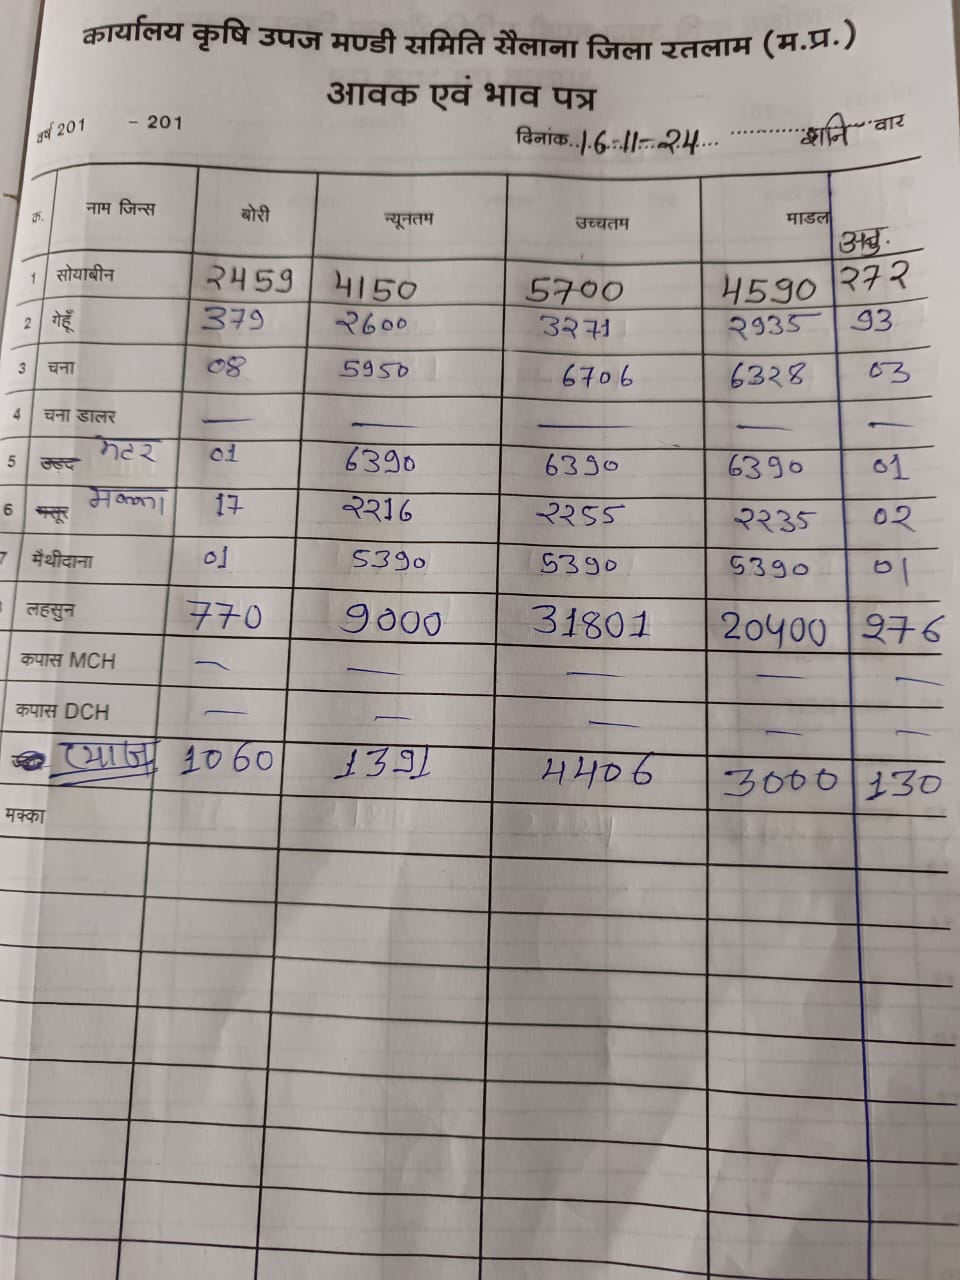 कार्यालय कृषि उपज मण्डी समिति सैलाना जिला रतलाम (म.प्र.)
आवक एवं भाव पत्र
वर्ष 201 - 201 दिनांक..16-11-24.... शनि वार
क्र. नाम जिन्स बोरी न्यूनतम उच्चतम माडल अनु.
1 सोयाबीन 2459 4150 5700 4590 272
2 गेहूँ 379 2600 3271 2935 93
3 चना 08 5950 6706 6328 03
4 चना डालर — — — — —
5 उड़द मटर 01 6390 6390 6390 01
6 मसूर मक्का 17 2216 2255 2235 02
7 मैथीदाना 01 5390 5390 5390 01
लहसुन 770 9000 31801 20400 276
कपास MCH — — — — —
कपास DCH — — — — —
प्याज 1060 1391 4406 3000 130
मक्का